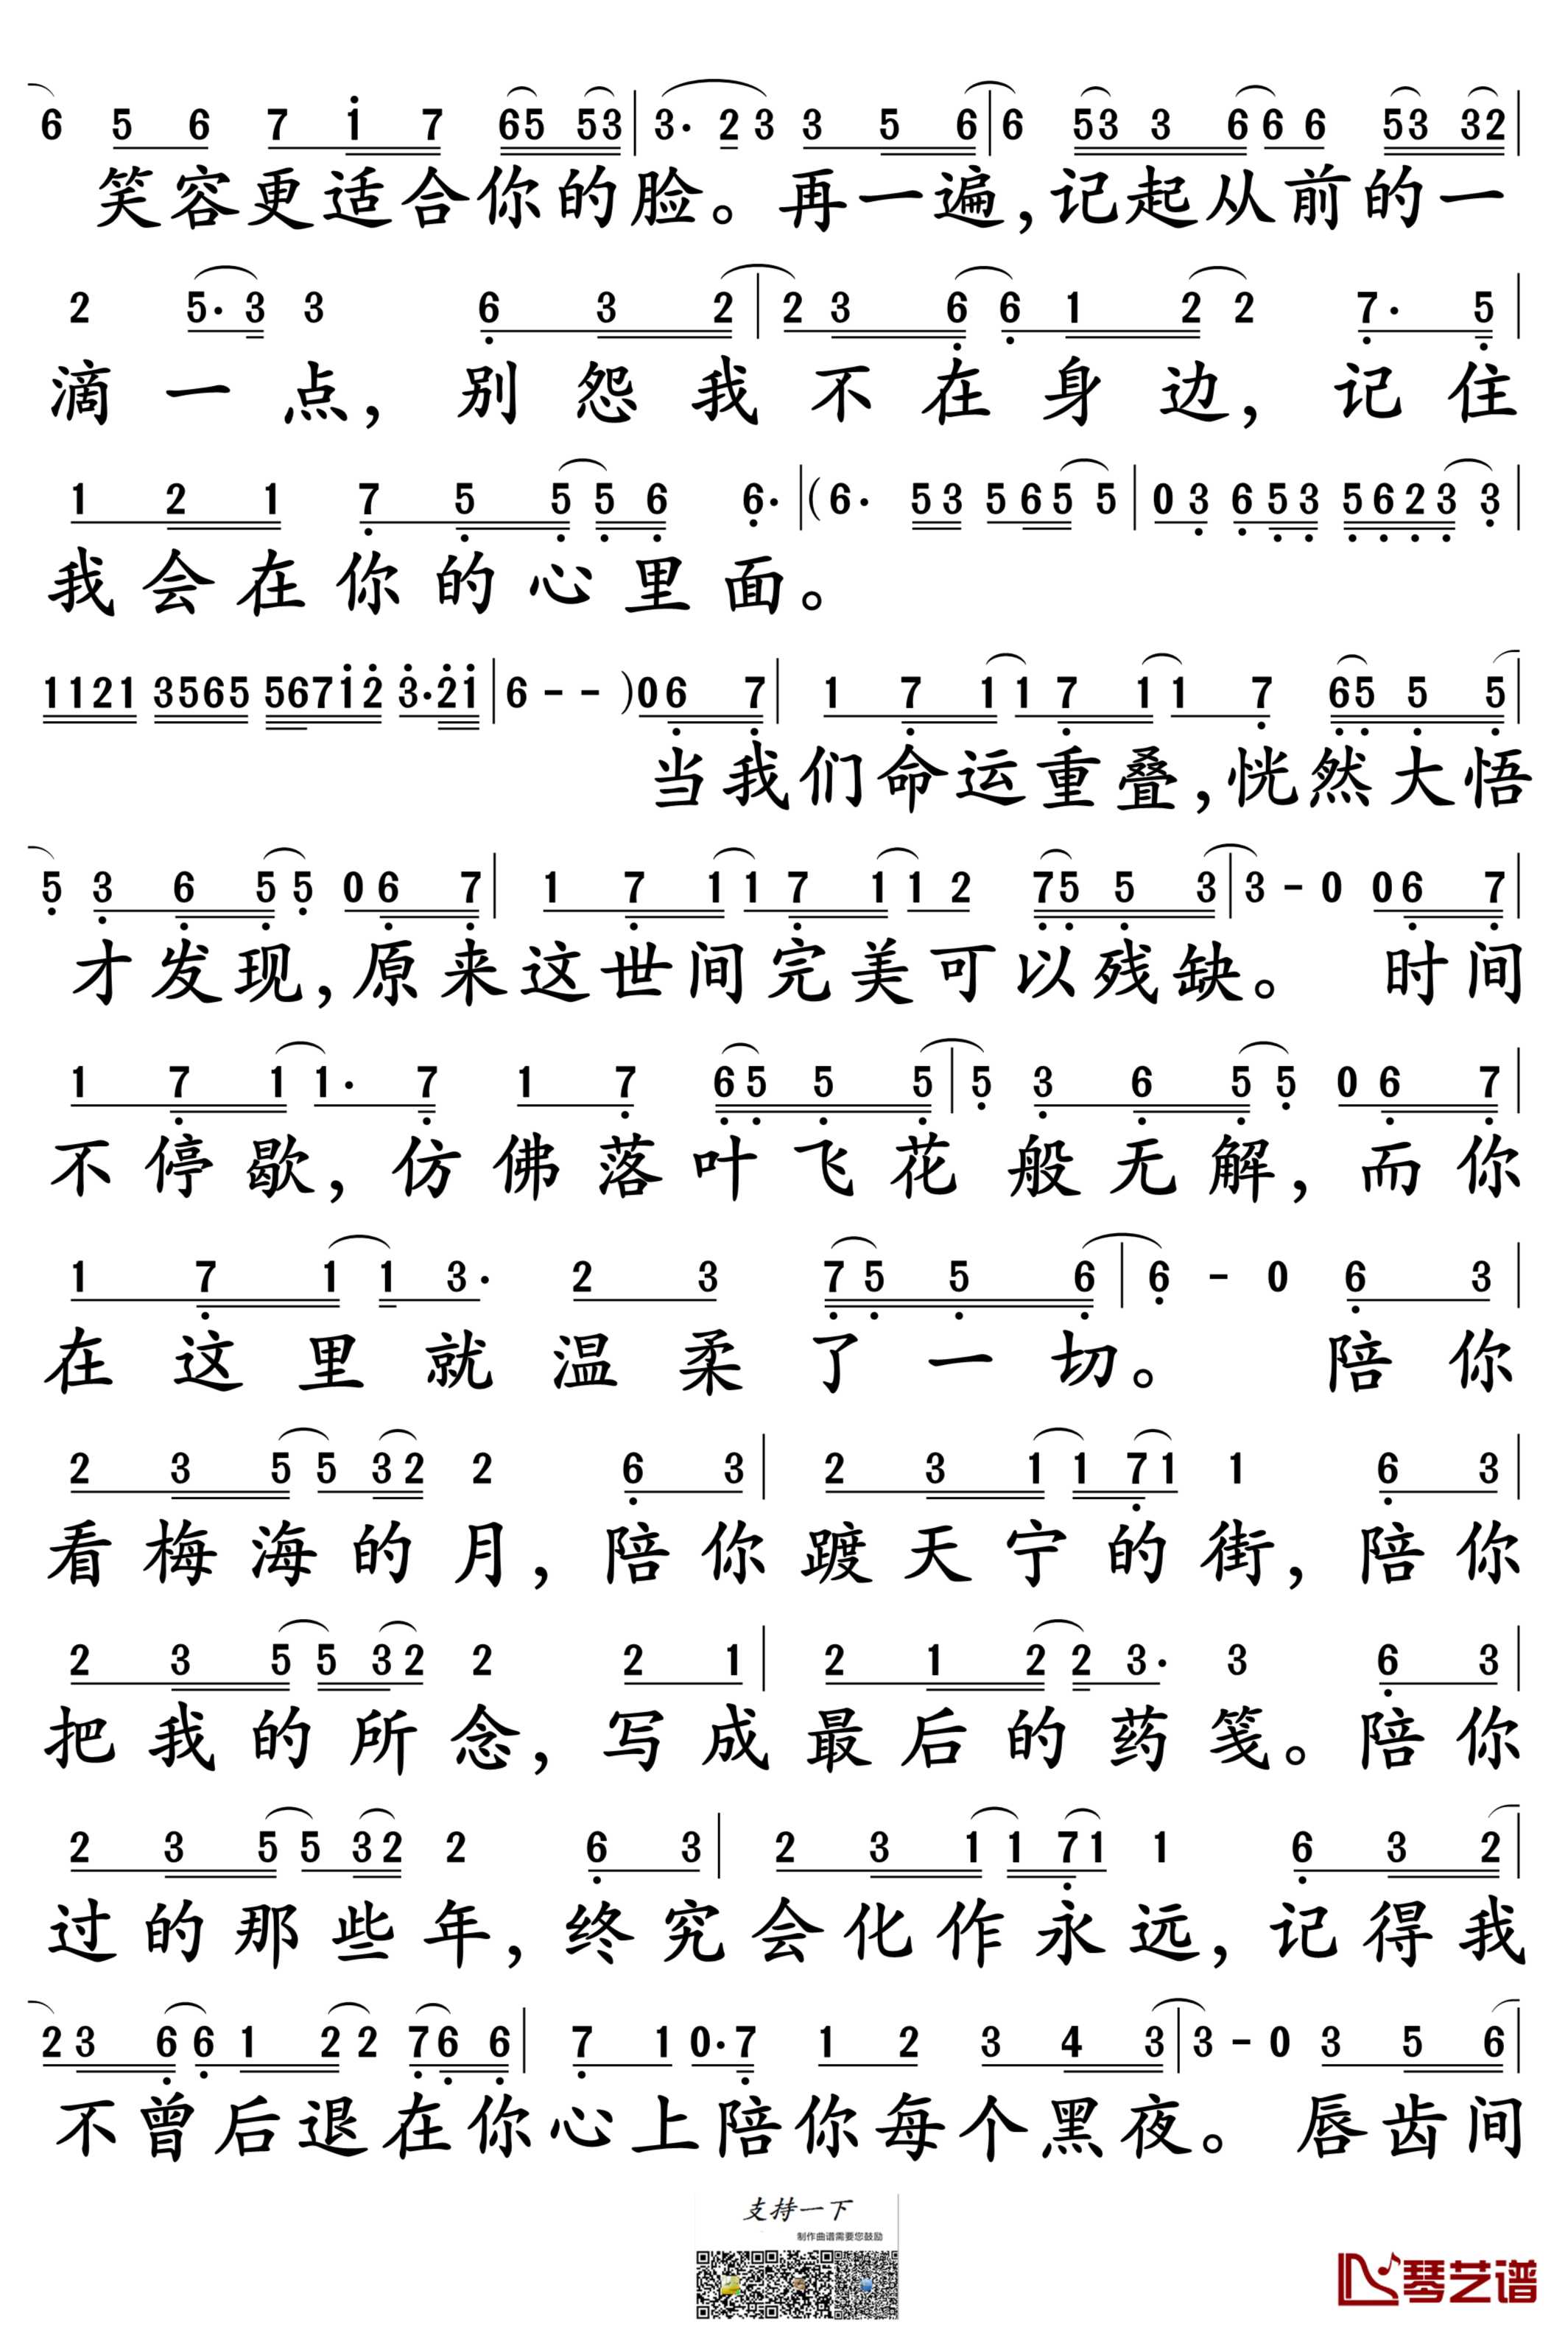 6 5 6 7 1 7 65 53 | 3· 2 3 3 5 6 | 6 53 3 6 6 6 53 32 |
笑容更适合你的脸。再一遍,记起从前的一
2 5·3 3 6 3 2 | 2 3 6 6 1 2 2 7· 5 |
滴一点,别怨我不在身边,记住
1 2 1 7 5 5 5 6 6· | (6· 53 565 5 | 0 3 6 53 5623 3 |
我会在你的心里面。
1121 3565 56712 3·21 | 6 - - )0 6 7 | 1 7 1 1 7 1 1 7 65 5 5 |
当我们命运重叠,恍然大悟
5 3 6 5 5 0 6 7 | 1 7 1 1 7 1 1 2 75 5 3 | 3 - 0 0 6 7 |
才发现,原来这世间完美可以残缺。 时间
1 7 1 1· 7 1 7 65 5 5 | 5 3 6 5 5 0 6 7 |
不停歇,仿佛落叶飞花般无解,而你
1 7 1 1 3· 2 3 75 5 6 | 6 - 0 6 3 |
在这里就温柔了一切。 陪你
2 3 5 5 32 2 6 3 | 2 3 1 1 71 1 6 3 |
看梅海的月,陪你踱天宁的街,陪你
2 3 5 5 32 2 2 1 | 2 1 2 2 3· 3 6 3 |
把我的所念,写成最后的药笺。陪你
2 3 5 5 32 2 6 3 | 2 3 1 1 71 1 6 3 2 |
过的那些年,终究会化作永远,记得我
2 3 6 6 1 2 2 76 6 | 7 1 0·7 1 2 3 4 3 | 3 - 0 3 5 6 |
不曾后退在你心上陪你每个黑夜。 唇齿间
支持一下
制作曲谱需要您鼓励
琴艺谱